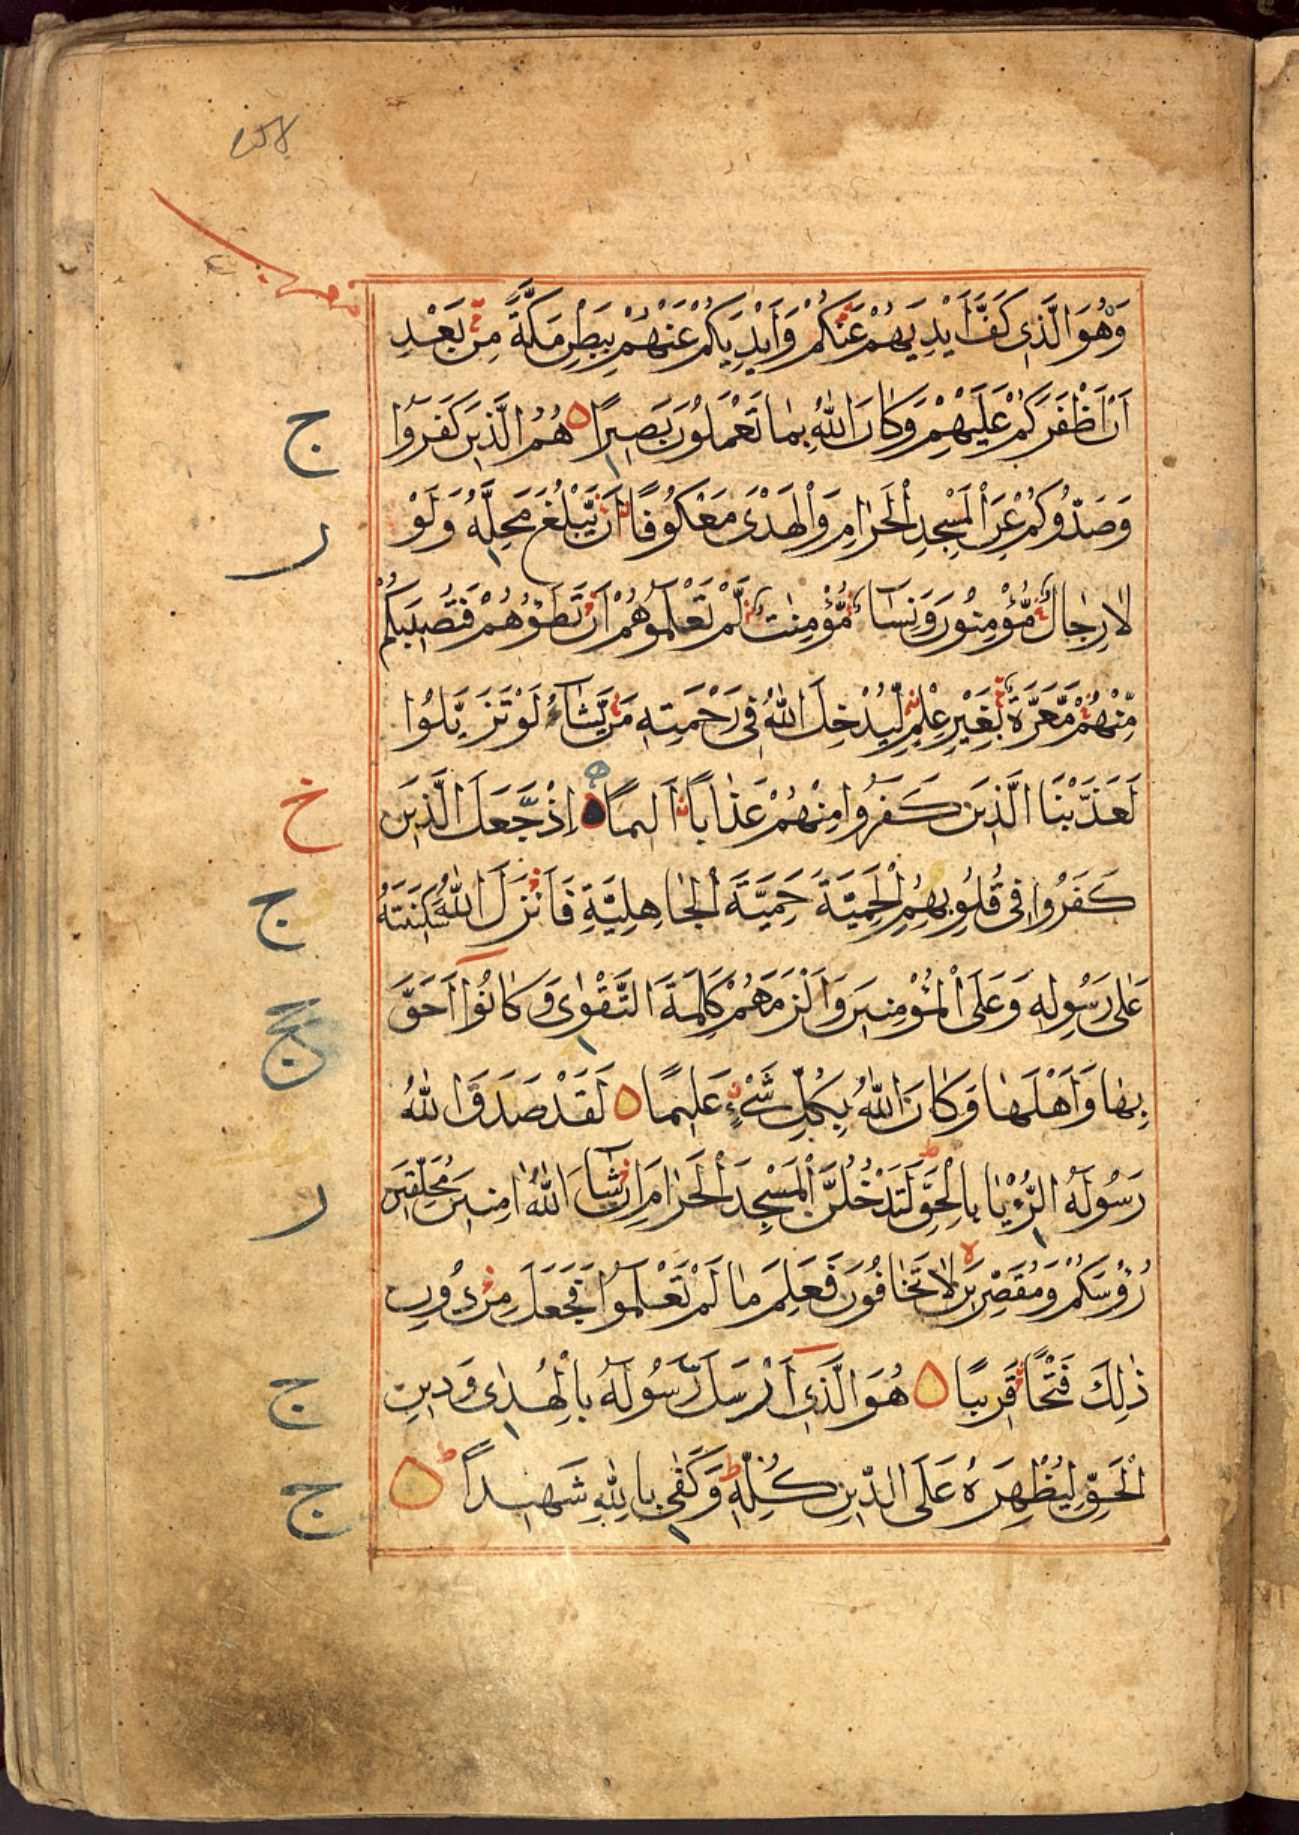 وَهُوَ الَّذِی كَفَّ اَیْدِیَهُمْ عَنْكُمْ وَاَیْدِیَكُمْ عَنْهُمْ بِبَطْنِ مَكَّةَ مِنْ بَعْدِ
اَنْ اَظْفَرَكُمْ عَلَیْهِمْ وَكَانَ اللّٰهُ بِمَا تَعْمَلُوْنَ بَصِیْرًا هُمُ الَّذِیْنَ كَفَرُوْا
وَصَدُّوْكُمْ عَنِ الْمَسْجِدِ الْحَرَامِ وَالْهَدْیَ مَعْكُوْفًا اَنْ یَّبْلُغَ مَحِلَّهٗ وَلَوْ
لَا رِجَالٌ مُّؤْمِنُوْنَ وَنِسَآءٌ مُّؤْمِنٰتٌ لَّمْ تَعْلَمُوْهُمْ اَنْ تَطَؤُهُمْ فَتُصِیْبَكُمْ
مِّنْهُمْ مَّعَرَّةٌ بِغَیْرِ عِلْمٍ لِیُدْخِلَ اللّٰهُ فِیْ رَحْمَتِهٖ مَنْ یَّشَآءُ لَوْ تَزَیَّلُوْا
لَعَذَّبْنَا الَّذِیْنَ كَفَرُوْا مِنْهُمْ عَذَابًا اَلِیْمًا اِذْ جَعَلَ الَّذِیْنَ
كَفَرُوْا فِیْ قُلُوْبِهِمُ الْحَمِیَّةَ حَمِیَّةَ الْجَاهِلِیَّةِ فَاَنْزَلَ اللّٰهُ سَكِیْنَتَهٗ
عَلٰی رَسُوْلِهٖ وَعَلَی الْمُؤْمِنِیْنَ وَاَلْزَمَهُمْ كَلِمَةَ التَّقْوٰی وَكَانُوْا اَحَقَّ
بِهَا وَاَهْلَهَا وَكَانَ اللّٰهُ بِكُلِّ شَیْءٍ عَلِیْمًا لَقَدْ صَدَقَ اللّٰهُ
رَسُوْلَهُ الرُّءْیَا بِالْحَقِّ لَتَدْخُلُنَّ الْمَسْجِدَ الْحَرَامَ اِنْ شَآءَ اللّٰهُ اٰمِنِیْنَ مُحَلِّقِیْنَ
رُؤُسَكُمْ وَمُقَصِّرِیْنَ لَا تَخَافُوْنَ فَعَلِمَ مَا لَمْ تَعْلَمُوْا فَجَعَلَ مِنْ دُوْنِ
ذٰلِكَ فَتْحًا قَرِیْبًا هُوَ الَّذِیْ اَرْسَلَ رَسُوْلَهٗ بِالْهُدٰی وَدِیْنِ
الْحَقِّ لِیُظْهِرَهٗ عَلَی الدِّیْنِ كُلِّهٖ وَكَفٰی بِاللّٰهِ شَهِیْدًا
ج
ر
خ
ج
ج
ر
ج
ج